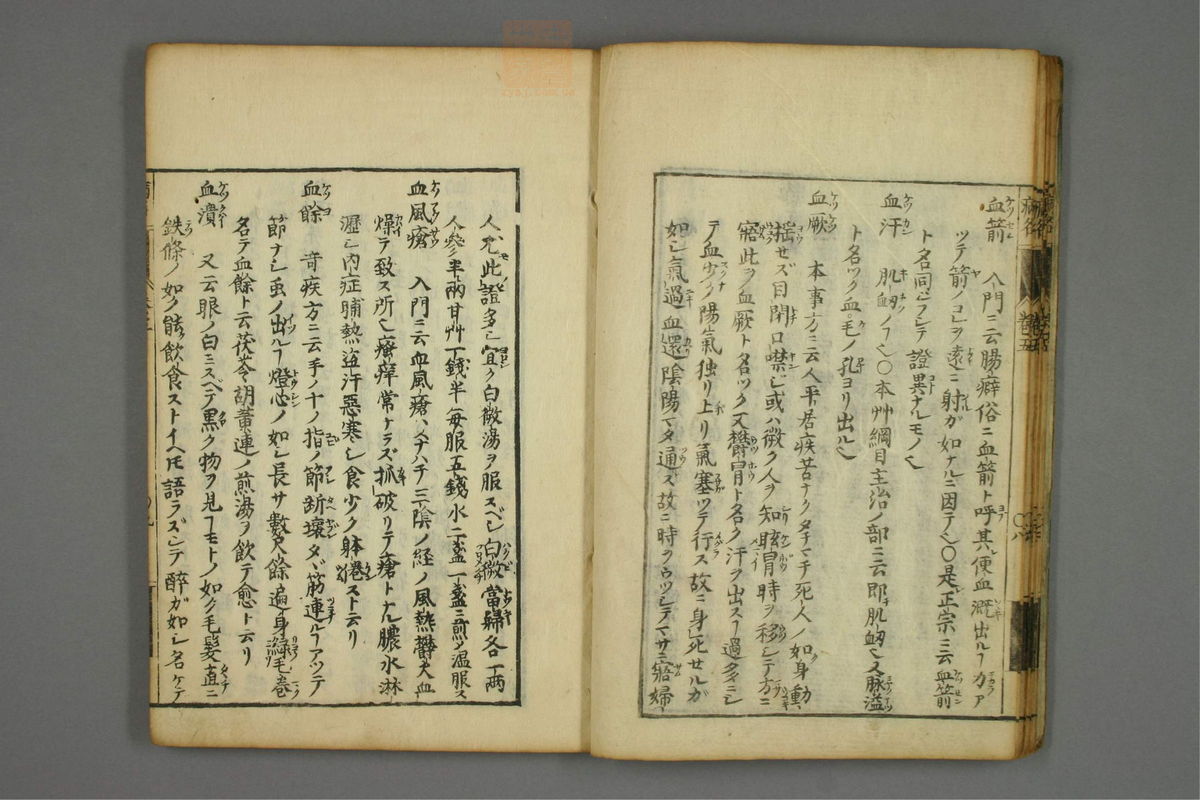 血箭 入門ニ云腸癖俗ニ血箭ト呼其便血濺出ルヿ力ア
ツテ箭ノコレヲ遠ニ射ガ如ナルニ因テ也〇是正宗ニ云血箭
ト名同フシテ證異ナルモノ也
血汗 肌衄ノヿ也〇本艸綱目主治ノ部ニ云即肌衄也又脉溢
ト名ヅク血毛ノ孔ヨリ出ル也
血厥 本事方ニ云人平居疾苦ナクタチマチ死人ノ如身動
揺セズ目閉口噤シ或ハ微ク人ヲ知眩冒時ヲ移シテ方ニ
寤此ヲ血厥ト名ヅク又欝冒ト名ク汗ヲ出スヿ過多ニシ
テ血少ク陽氣独リ上リ氣塞ツテ行ス故ニ身死セルガ
如シ氣過血還陰陽マタ通ズ故ニ時ヲウツシテマサニ寤婦
人尤此證多シ宜ク白薇湯ヲ服スベシ白薇當歸各一兩
人參半兩甘艸一錢半毎服五錢水二盞一盞ニ煎メ温服ス
血風瘡 入門ニ云血風瘡ハスナハチ三陰ノ経ノ風熱欝火血
燥テ致ス所也瘙痒常ナラズ抓破リテ瘡トナル膿水淋
瀝シ内症晡熱盗汗惡寒シ食少ク躰倦スト云リ
血餘 竒疾方ニ云手ノ十ノ指ノ節断壞タヾ筋連ルヿアツテ
節ナシ虫ノ出ルヿ燈心ノ如シ長サ數尺餘遍身緑毛巻
名テ血餘ト云茯苓胡黄連ノ煎湯ヲ飲テ愈ト云リ
血潰 又云眼ノ白ミスベテ黒ク物ヲ見ヿモトノ如ク毛髪直ニ
鉄條ノ如ク能飲食ストイヘドモ語ラズシテ醉ガ如シ名ケテ